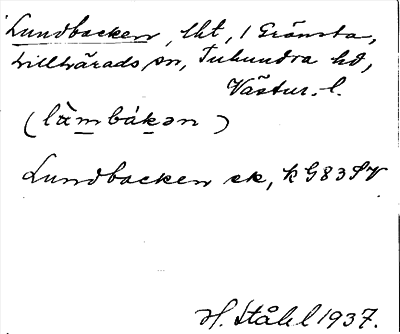 Lundbacken, lht, i Gränsta,
Lillhärads sn, Tuhundra hd,
Västm. l.
(làm̲bák̲ən)
Lundbacken ek, k G 83 SV
H. Ståhl 1937.